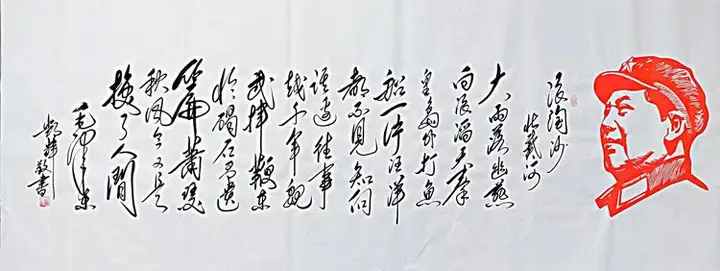 浪淘沙
北戴河
大雨落幽燕
白浪滔天秦
皇島外打魚
船一片汪洋
都不見知向
誰邊往事
越千年魏
武揮鞭东
临碣石有遗
篇蕭瑟
秋风今又是
換了人間
毛泽东
敬書